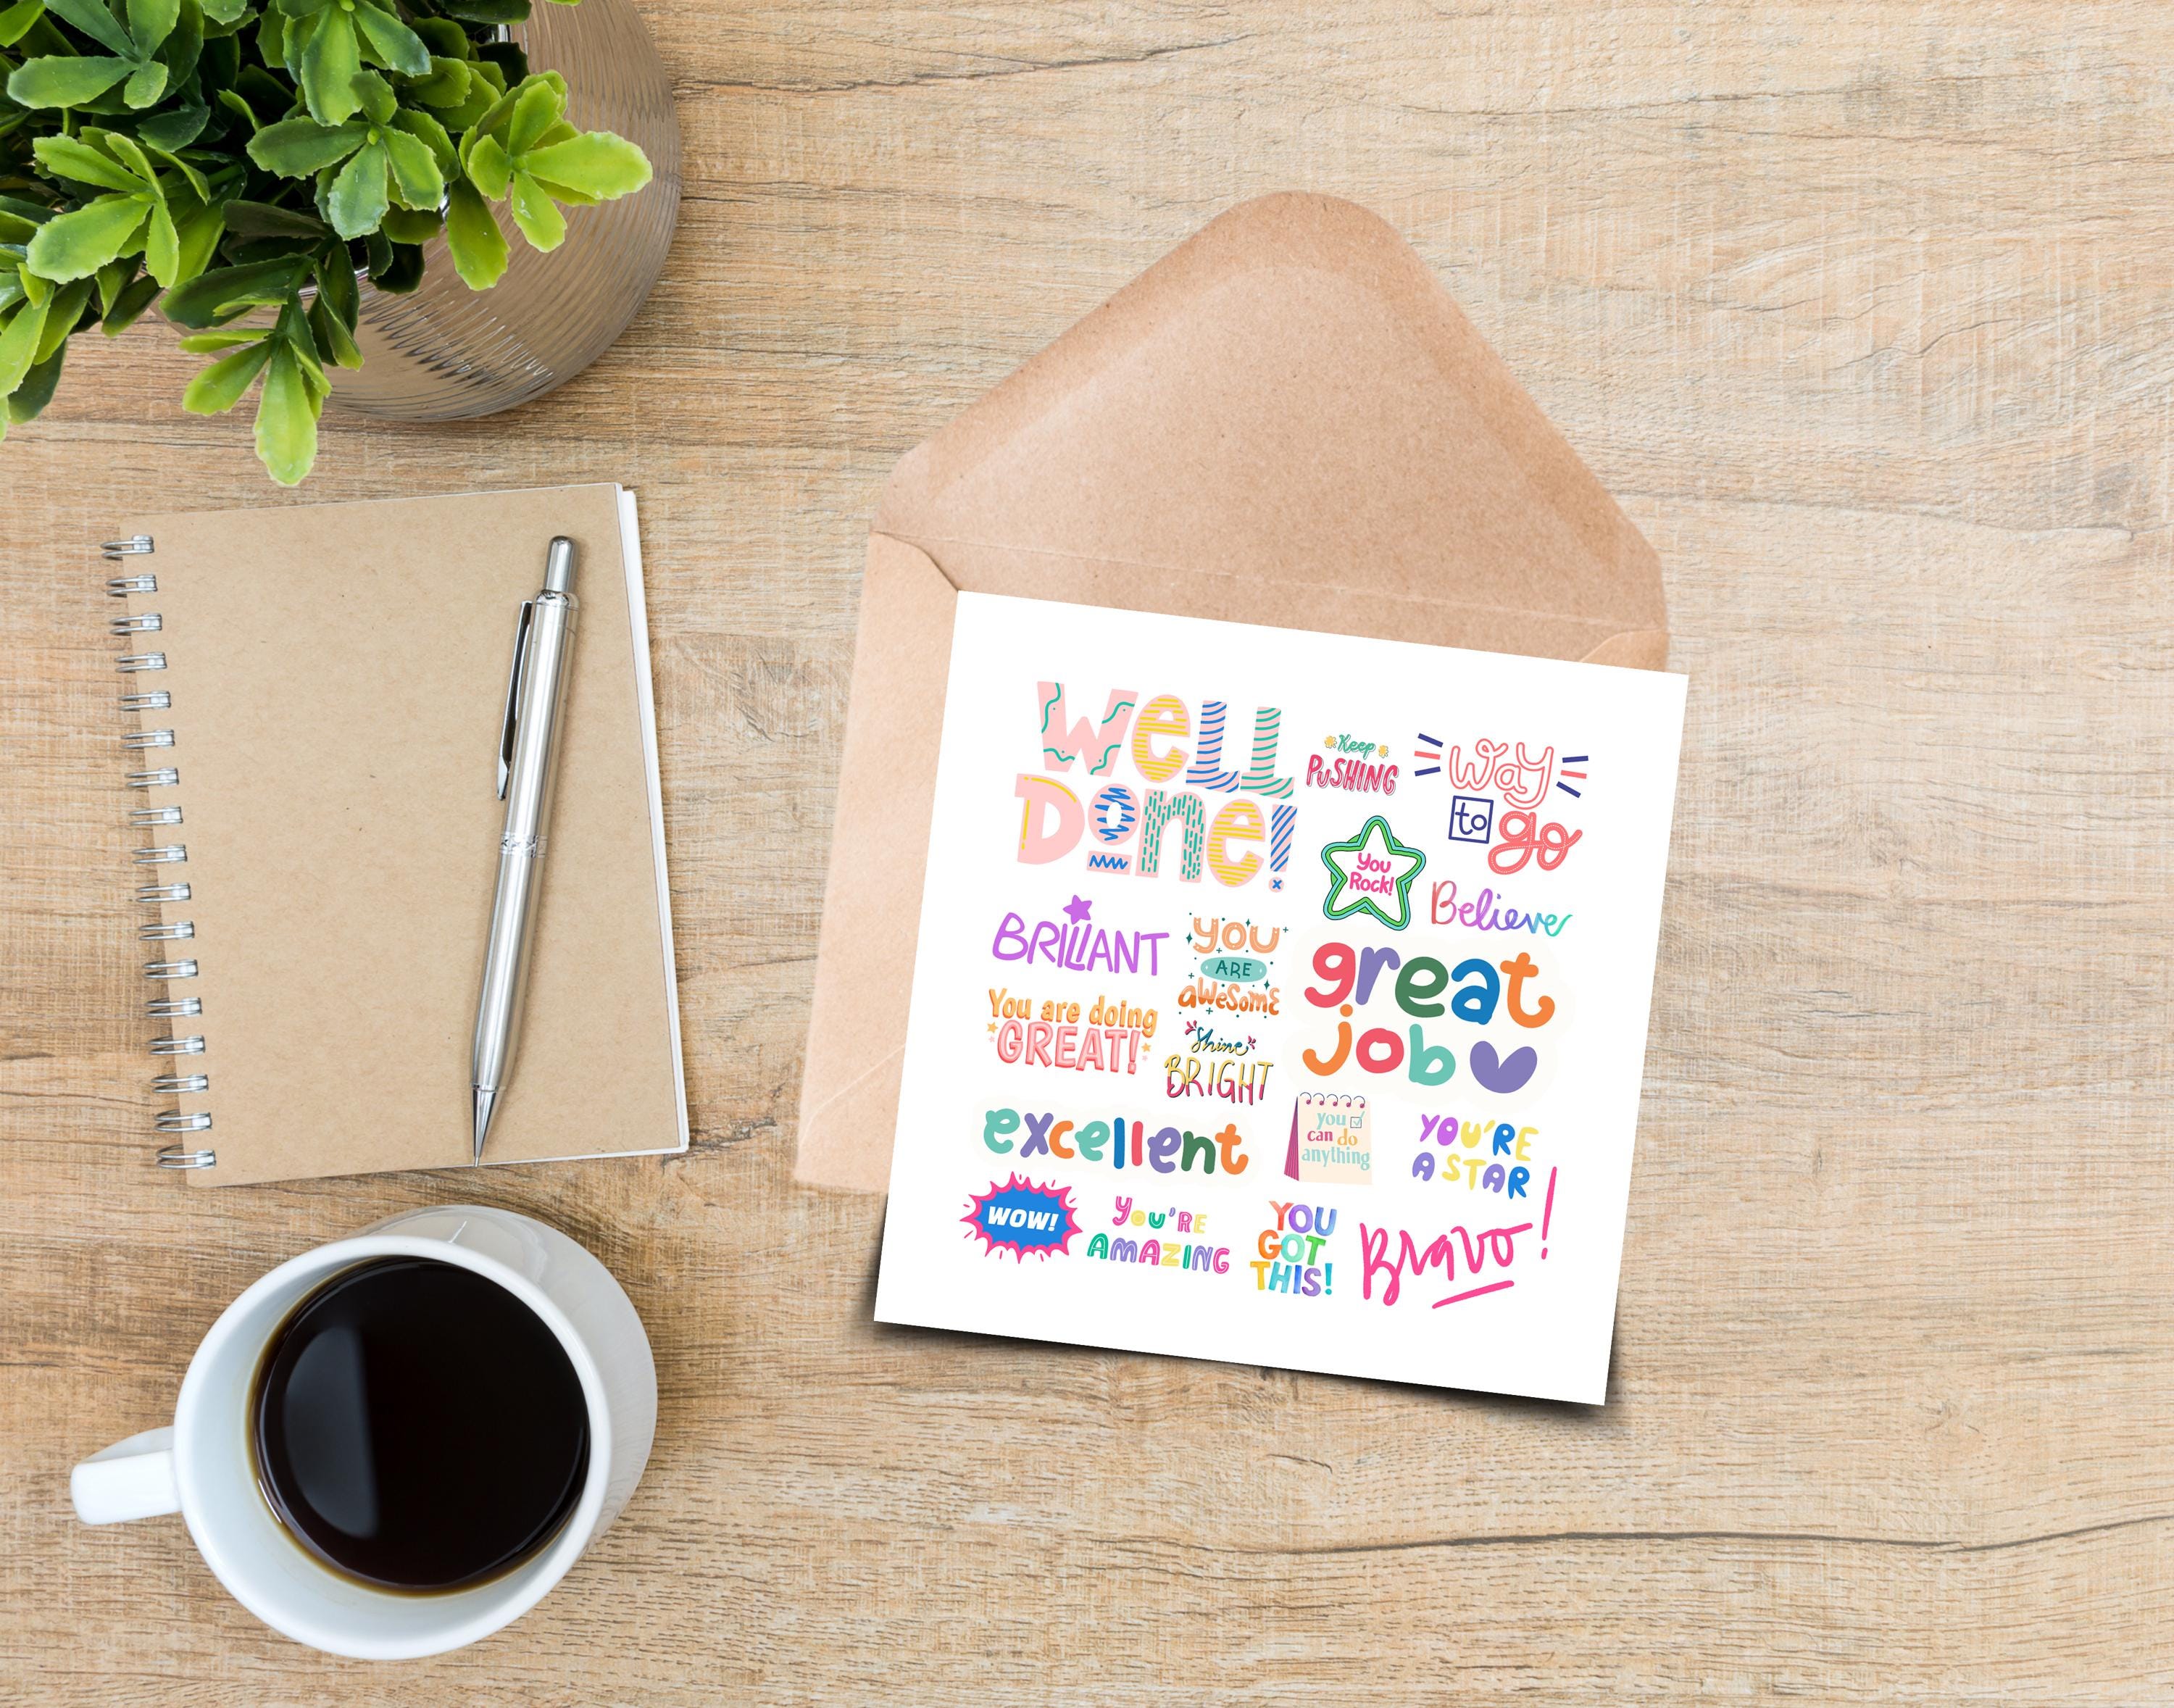 Well
Done!
Keep
PuSHING
way
to go
You
Rock!
Believe
BRILLIANT
you
ARE
aWesome
great
job
You are doing
GREAT!
Shine
BRIGHT
excellent
you
can do
anything
YOU'RE
A STAR
WOW!
YOU'RE
AMAZING
YOU
GOT
THIS!
Bravo!